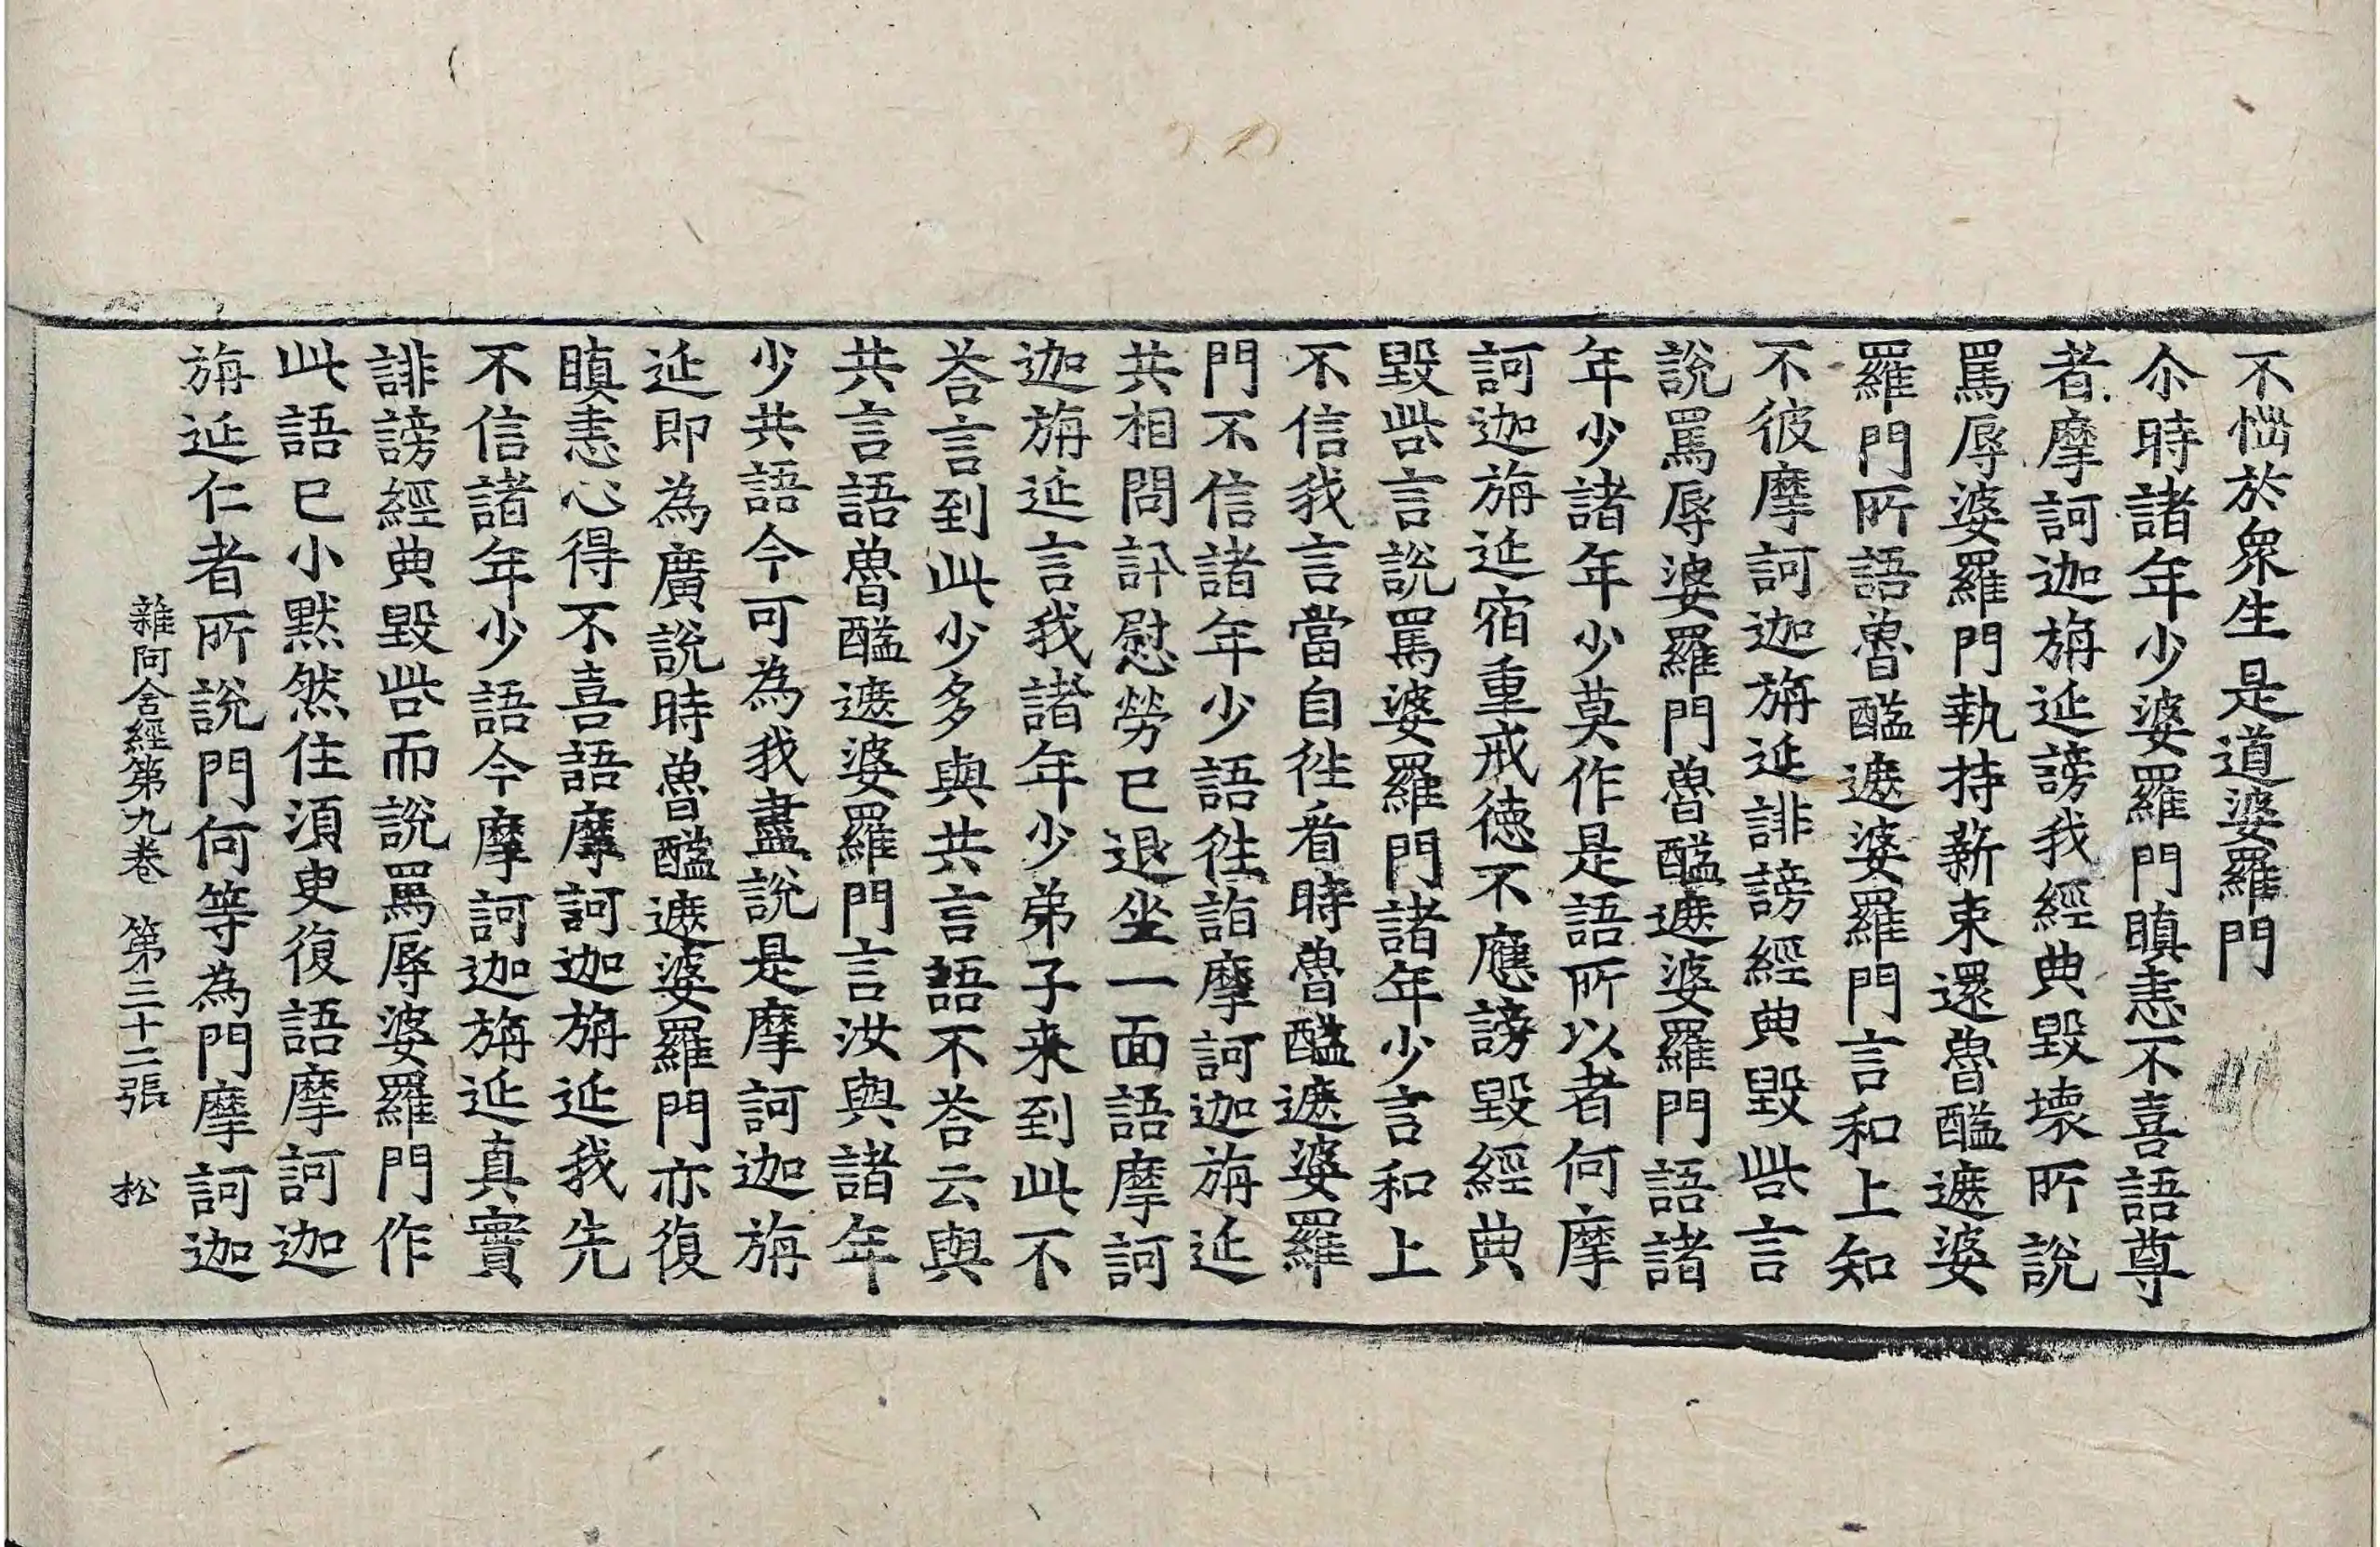 不惱於衆生是道婆羅門
尒時諸年少婆羅門瞋恚不喜語尊
者摩訶迦旃延謗我經典毀壞所說
罵辱婆羅門執持薪束還魯醯遮婆
羅門所語魯醯遮婆羅門言和上知
不彼摩訶迦旃延誹謗經典毀呰言
說罵辱婆羅門魯醯遮婆羅門語諸
年少諸年少莫作是語所以者何摩
訶迦旃延宿重戒德不應謗毀經典
毀呰言說罵婆羅門諸年少言和上
不信我言當自往看時魯醯遮婆羅
門不信諸年少語往詣摩訶迦旃延
共相問訊慰勞已退坐一面語摩訶
迦旃延言我諸年少弟子来到此不
荅言到此少多與共言語不荅云與
共言語魯醯遮婆羅門言汝與諸年
少共語今可為我盡說是摩訶迦旃
延即為廣說時魯醯遮婆羅門亦復
瞋恚心得不喜語摩訶迦旃延我先
不信諸年少語今摩訶迦旃延真實
誹謗經典毀呰而說罵辱婆羅門作
此語已小默然住須臾復語摩訶迦
旃延仁者所說門何等為門摩訶迦
雜阿含經第九卷 第三十二張 松